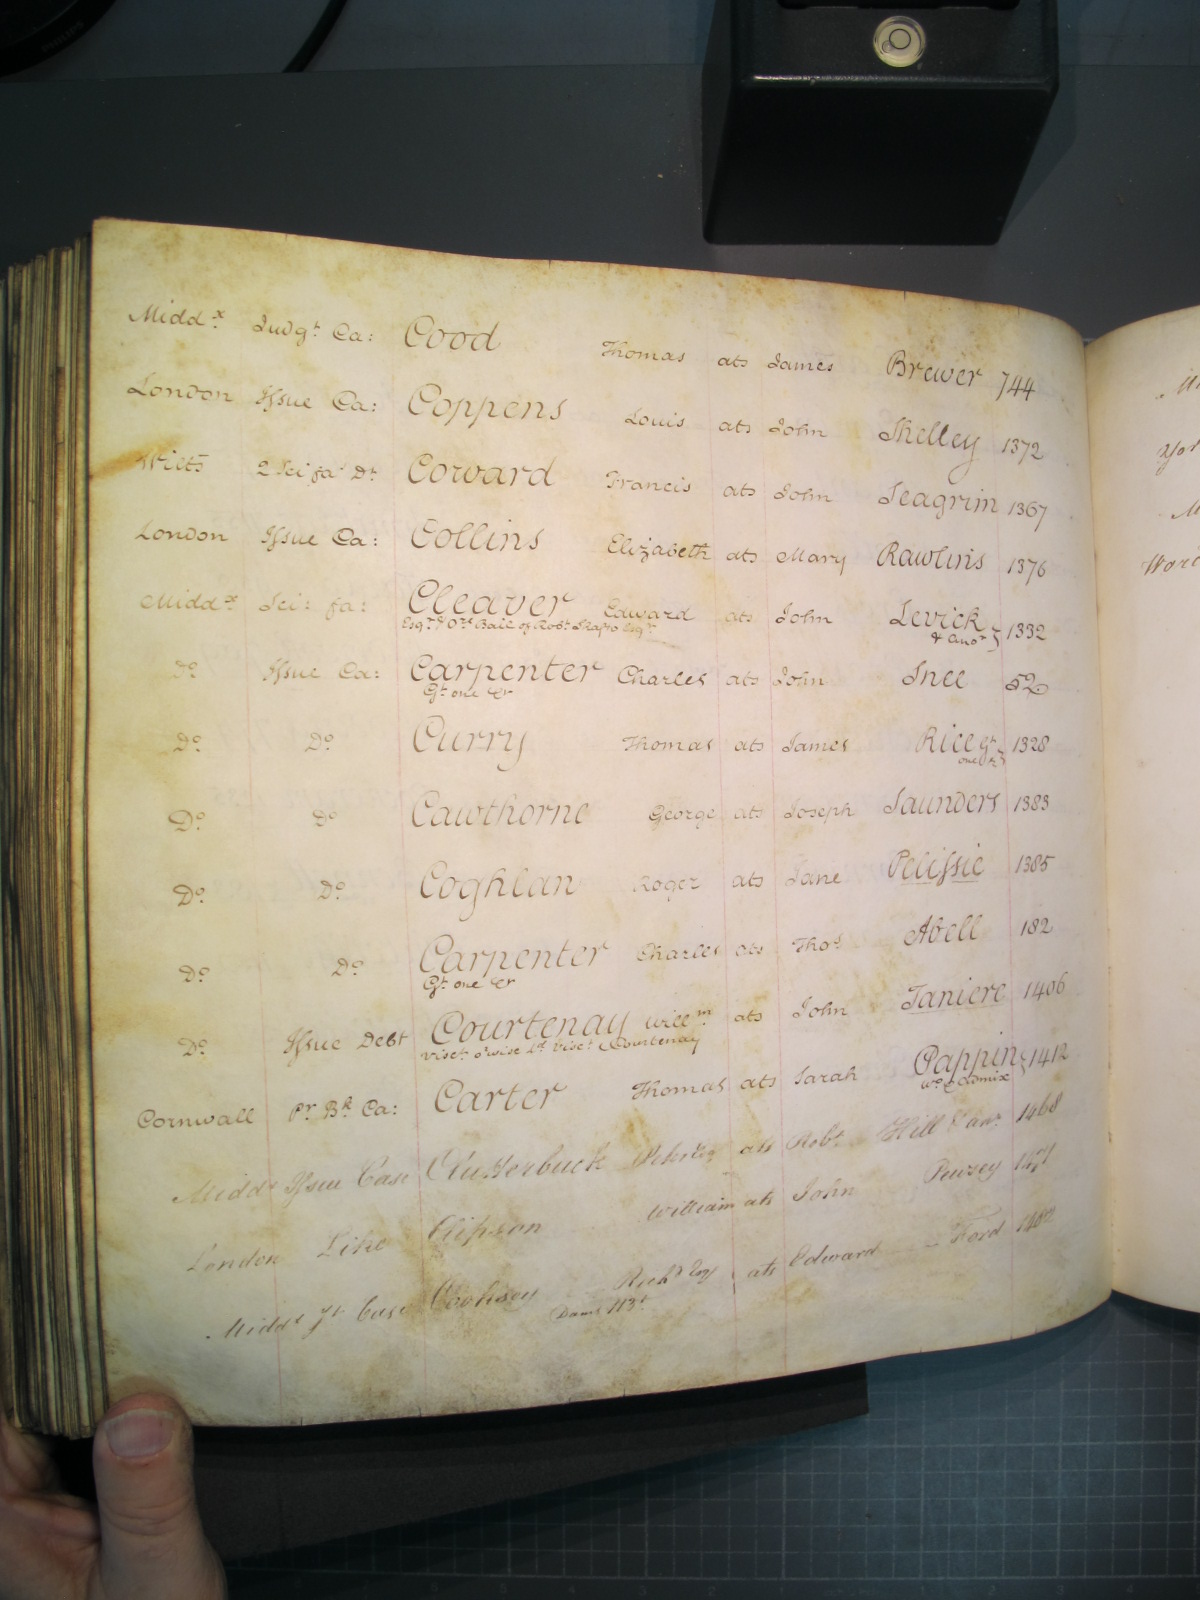 Middx Judgt Ca: Cood Thomas ats James Brewer 744
London Issue Ca: Coppens Louis ats John Shelley 1372
Wilts 2 Sci fa Dt Coward Francis ats John Seagrim 1367
London Issue Ca: Collins Elizabeth ats Mary Rawlins 1376
Middx Sci: fa: Cleaver Edward ats John Levick 1332
Esqr & Ors Bail of Robt Shafto Esqr & anor
Do Issue Ca: Carpenter Charles ats John Inee 52
Gt one &c
Do Do Curry Thomas ats James Rice gt 1328
one &c
Do Do Cawthorne George ats Joseph Saunders 1383
Do Do Coghlan Roger ats Jane Pelissie 1385
Do Do Carpenter Charles ats Thos Abell 182
Gt one &c
Do Issue Debt Courtenay Willm ats John Taniere 1406
Visct o'wise Ld Visct Courtenay
Cornwall Pr. Bk Ca: Carter Thomas ats Sarah Pappin 1412
wo & Admix
Middx Issue Case Clutterbuck ats Robt Hill & anr 1468
London Like Clipson William ats John Pewsey 1471
Middx Jt Case Cooksey Richd Esq ats Edward Ford
Dams 113£